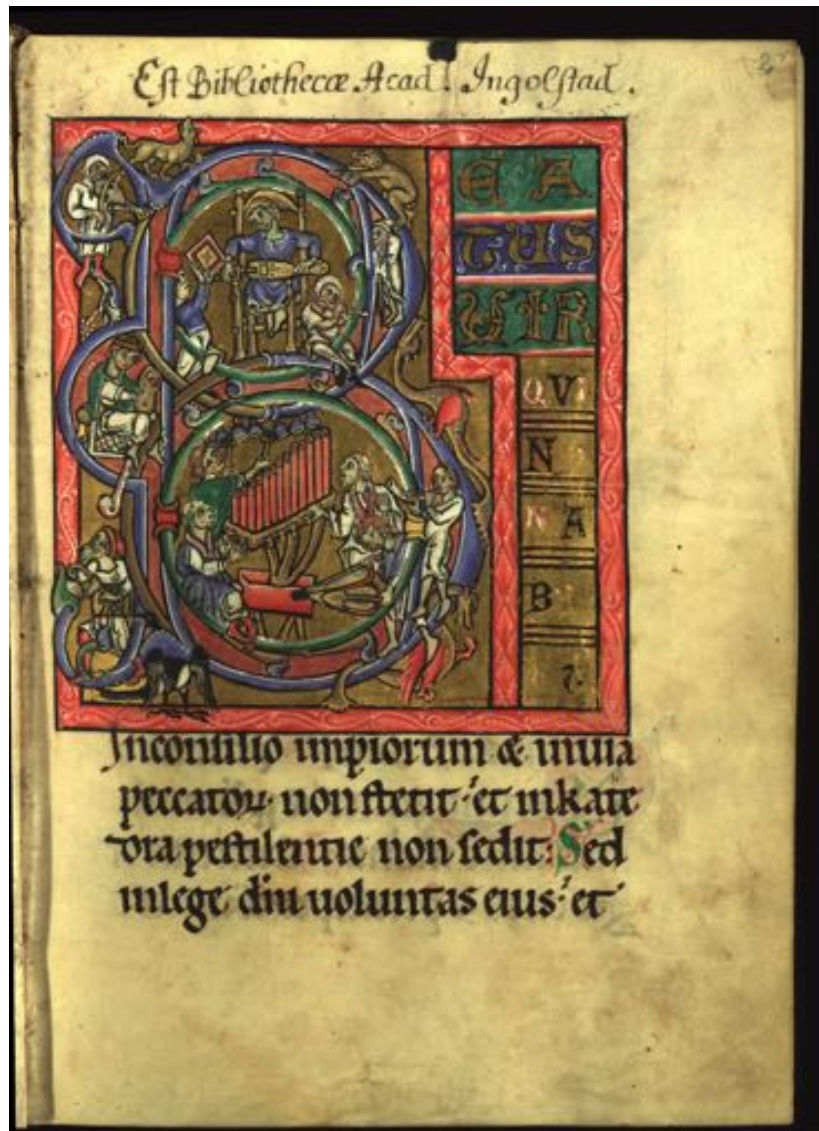 Est Bibliothecæ Acad. Ingolstad.
2
B
EA
TUS
UIR
QVI
NO
NA
BI
Inconsilio impiorum & inuia
peccatoꝝ· non stetit· et inkate
dra pestilentie non sedit: Sed
inlege dn̄i uoluntas eius· et